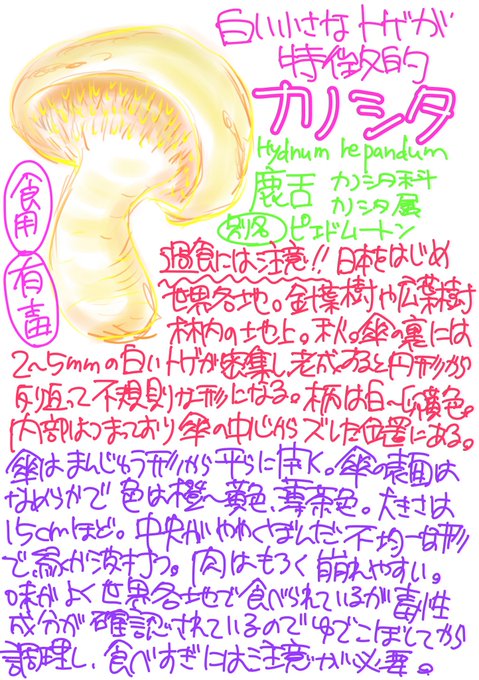 白い小さなトゲが
特徴的
カノシタ
Hydnum repandum
鹿舌 カノシタ科
カノシタ属
別名 ピエドムートン
食用
有毒
過食には注意!! 日本をはじめ
世界各地。針葉樹や広葉樹
林内の地上。秋。傘の裏には
2〜5mmの白いトゲが密集し老成すると円形から
反り返って不規則な形になる。柄は白〜淡黄色。
内部はつまっており傘の中心からズレた位置にある。
傘はまんじゅう形から平らに開く。傘の表面は
なめらかで色は橙〜黄色、薄茶色。大きさは
15cmほど。中央がややくぼんだ不均一な形
で、縁が波打つ。肉はもろく崩れやすい。
味がよく世界各地で食べられているが毒性
成分が確認されているのでゆでこぼしてから
調理し、食べすぎには注意が必要。